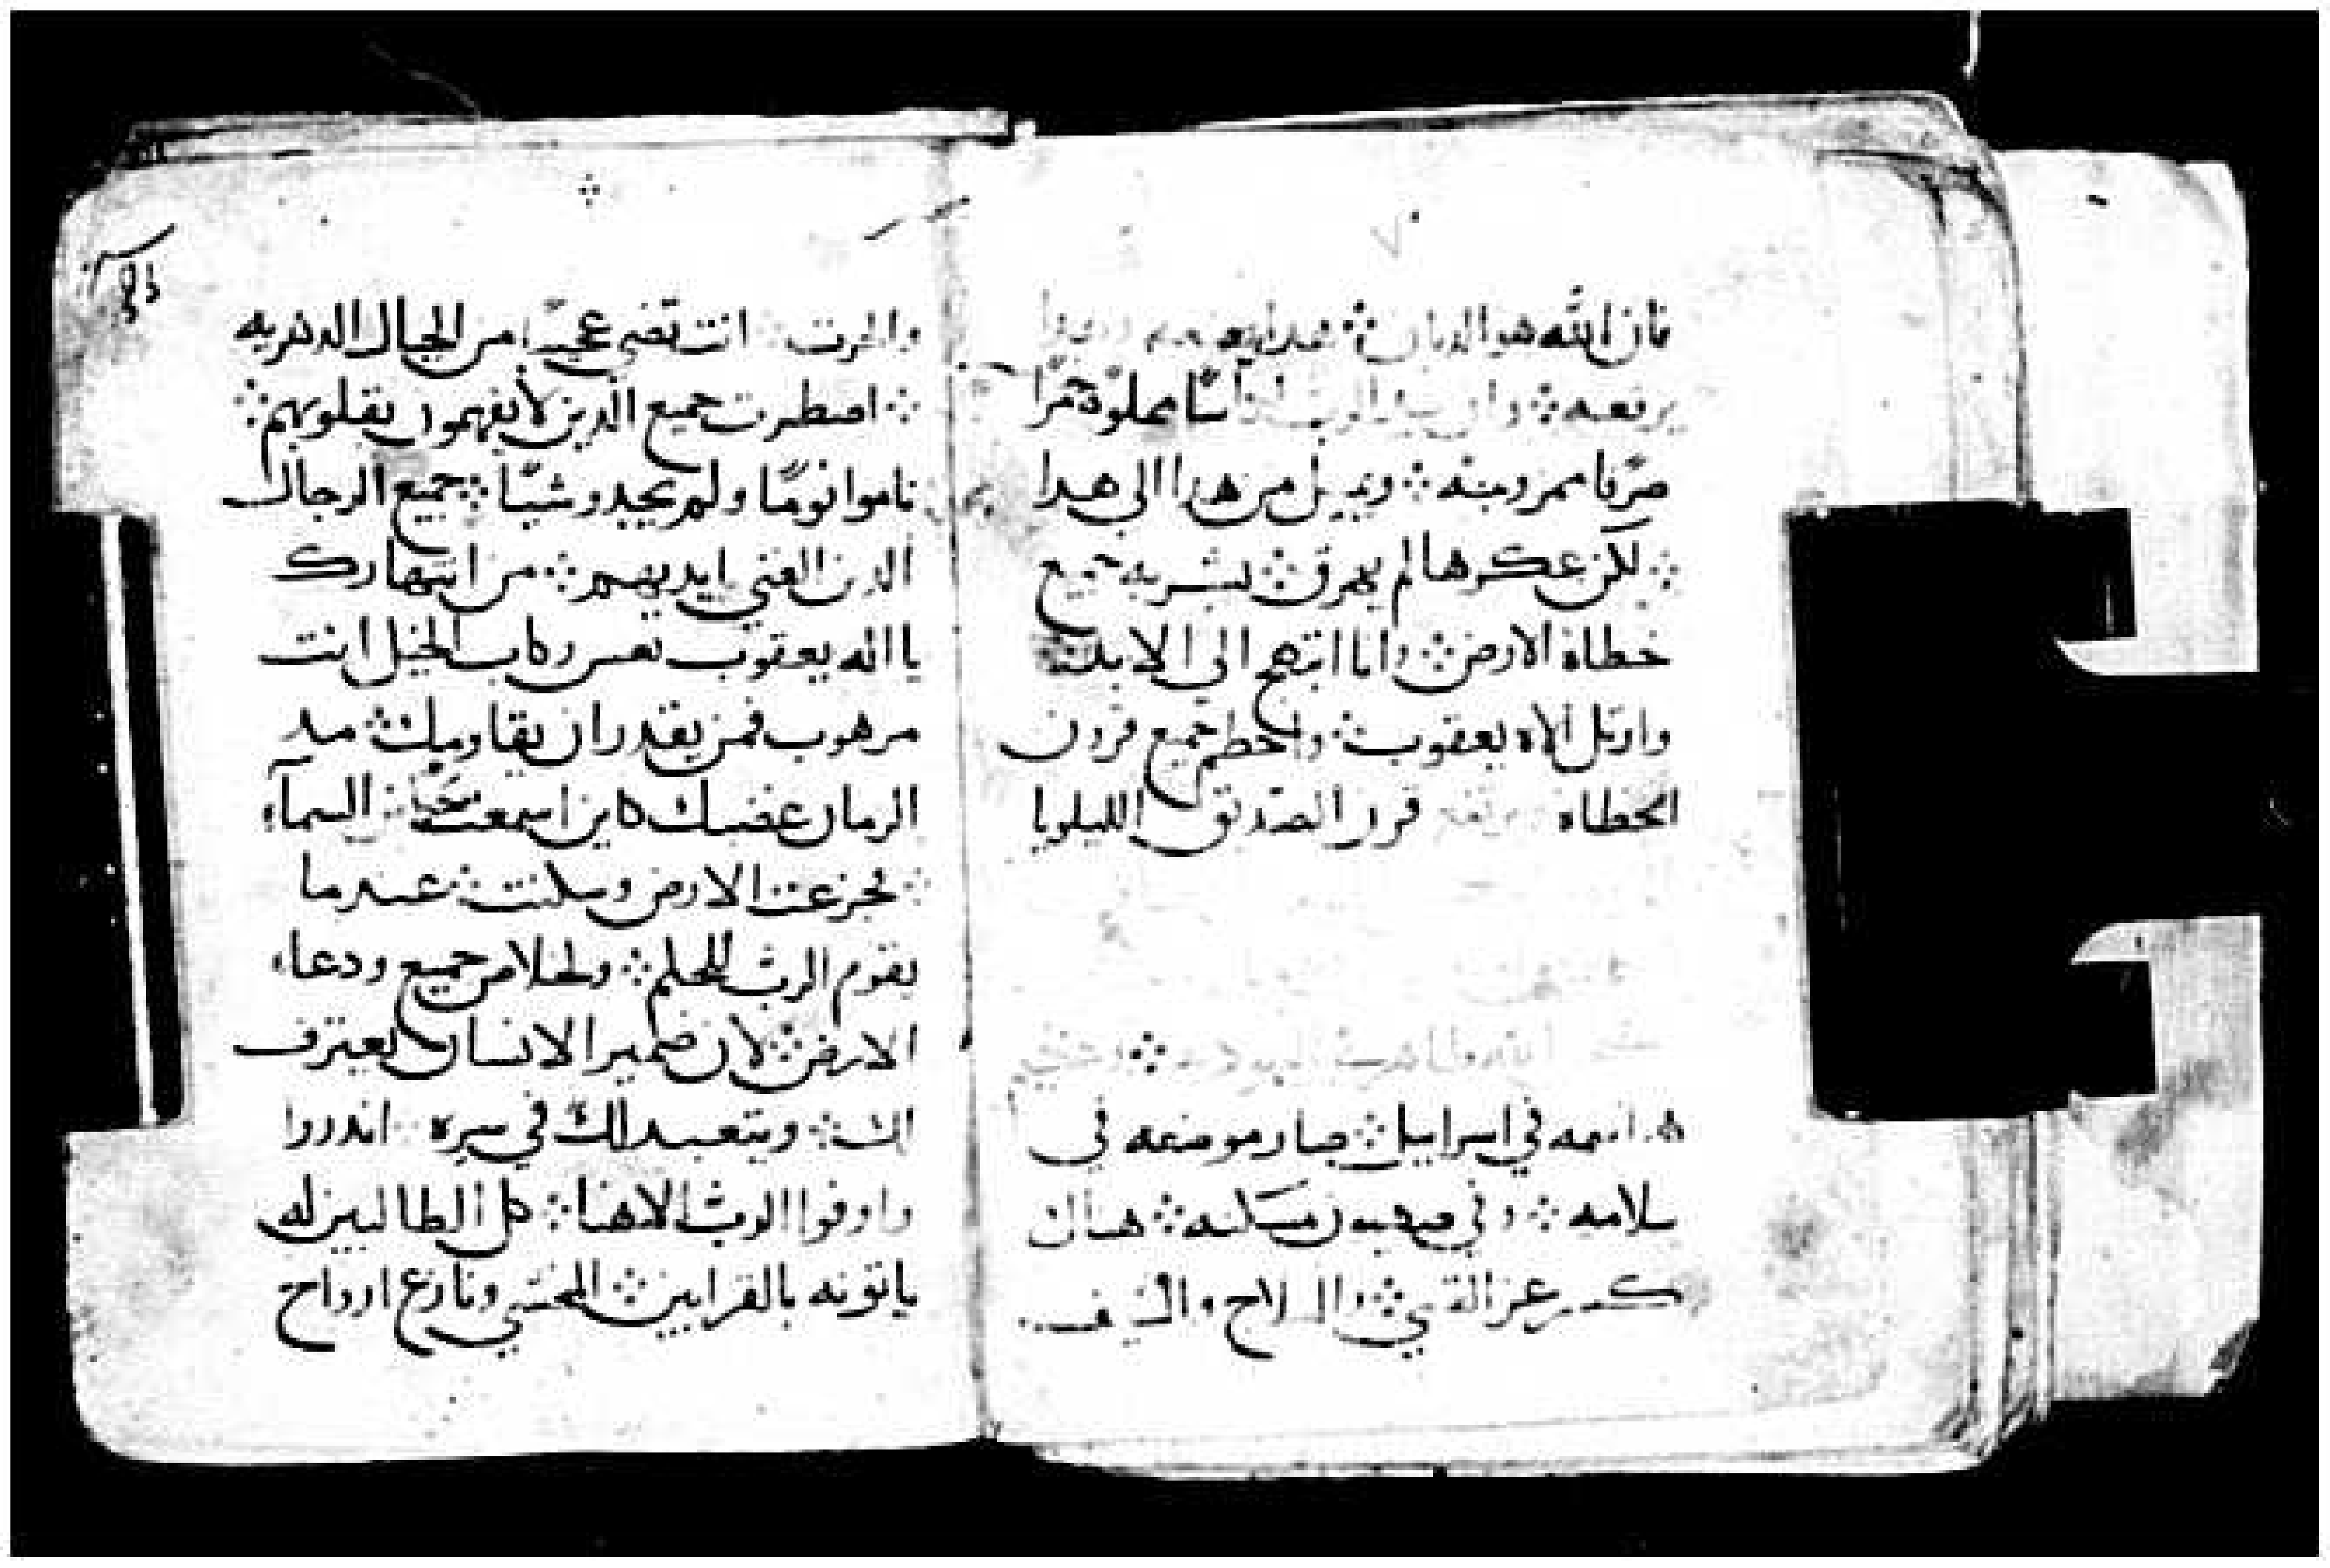 فان الله هو الديان ⁘ هدا يضعه
يرفعه ⁘ وان بيد الرب كاسًا مملوة خمرًا
صرفا ممزوجة ⁘ ويميل من هدا الي هدا
⁘ لكن عكرها لم يهرق ⁘ يشربه جميع
خطاة الارض ⁘ وانا ابتهج الي الابد ⁘
وارتل لالاه يعقوب ⁘ واحطم جميع قرون
الخطاة قرن الصديق الليلويا
اسمه في اسراييل ⁘ صار موضعه في
سلامه ⁘ وفي صهيون مسكنه ⁘ هناك
كسر عز القسي ⁘ والسلاح والسيف
والحرب انت تضي عجبًا من الجبال الدهريه
⁘ اضطربت جميع الذين لا يفهمون بقلوبهم ⁘
ناموا نومًا ولم يجدو شيًا ⁘ جميع الرجال
الدين الغني ايديهم ⁘ من انتهارك
يا اله يعقوب نعس ركاب الخيل انت
مرهوب فمن يقدر ان يقاومك ⁘ مند
الزمان غضبك اين اسمعت من السمآء
⁘ فجزعت الارض وسكنت ⁘ عندما
يقوم الرب للحكم ⁘ ولخلاص جميع ودعاء
الارض ⁘ لان ضمير الانسان يعترف
لك ⁘ ويتعبد لك في سره اندروا
واوفوا الرب الاهنا ⁘ كل الطالبين له
ياتونه بالقرابين ⁘ المخشي ونازع ارواح